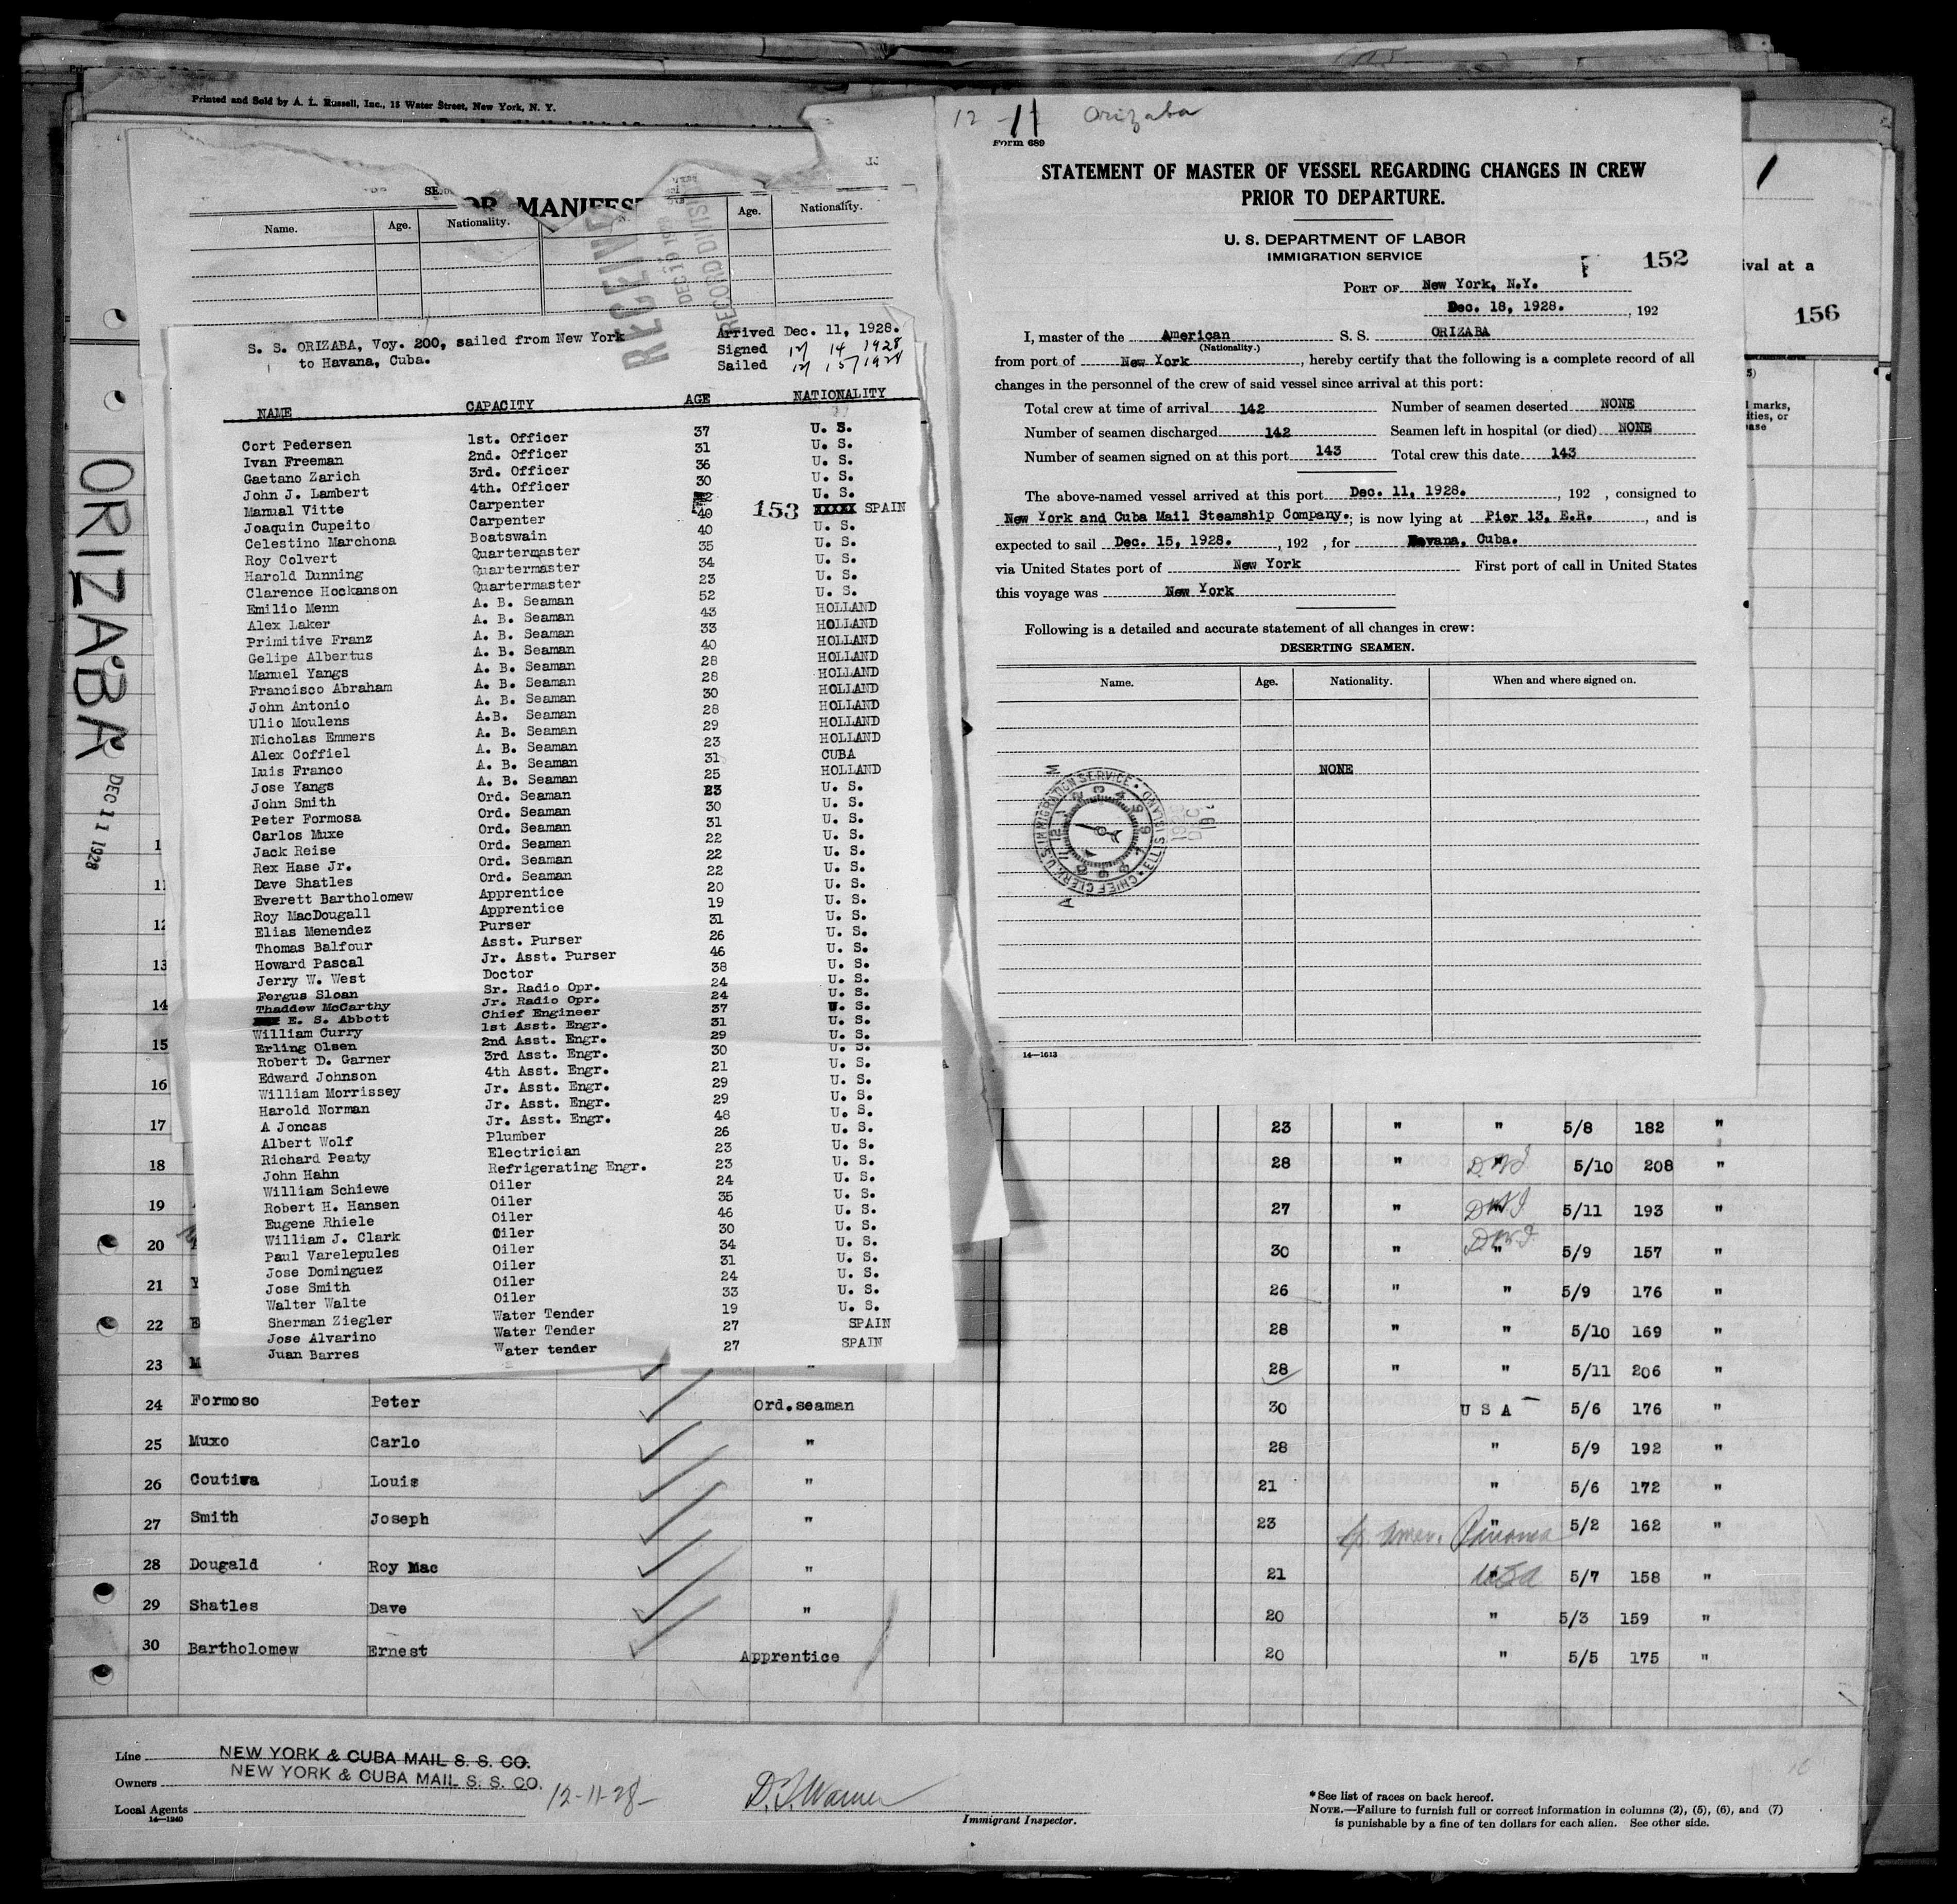 Printed and Sold by A. L. Russell, Inc., 15 Water Street, New York, N. Y.
OR MANIFEST
Name. Age. Nationality. Age. Nationality.
RECEIVED
RECORD DIVISION
S. S. ORIZABA, Voy. 200, sailed from New York
to Havana, Cuba.
Arrived Dec. 11, 1928.
Signed 12/ 14 1928
Sailed 12/ 15/ 1928
NAME CAPACITY AGE NATIONALITY
Cort Pedersen 1st. Officer 37 U. S.
Ivan Freeman 2nd. Officer 31 U. S.
Gaetano Zarich 3rd. Officer 36 U. S.
John J. Lambert 4th. Officer 30 U. S.
Manual Vitte Carpenter U. S.
Joaquin Cupeito Carpenter 40 153 XXXXX SPAIN
Celestino Marchona Boatswain 40 U. S.
Roy Colvert Quartermaster 35 U. S.
Harold Dunning Quartermaster 34 U. S.
Clarence Hockanson Quartermaster 23 U. S.
Emilio Menn A. B. Seaman 52 U. S.
Alex Laker A. B. Seaman 43 HOLLAND
Primitive Franz A. B. Seaman 33 HOLLAND
Gelipe Albertus A. B. Seaman 40 HOLLAND
Manuel Yangs A. B. Seaman 28 HOLLAND
Francisco Abraham A. B. Seaman 28 HOLLAND
John Antonio A. B. Seaman 30 HOLLAND
Ulio Moulens A.B. Seaman 28 HOLLAND
Nicholas Emmers A. B. Seaman 29 HOLLAND
Alex Coffiel A. B. Seaman 23 HOLLAND
Luis Franco A. B. Seaman 31 CUBA
Jose Yangs A. B. Seaman 25 HOLLAND
John Smith Ord. Seaman 23 U. S.
Peter Formosa Ord. Seaman 30 U. S.
Carlos Muxe Ord. Seaman 31 U. S.
Jack Reise Ord. Seaman 22 U. S.
Rex Hase Jr. Ord. Seaman 22 U. S.
Dave Shatles Ord. Seaman 22 U. S.
Everett Bartholomew Apprentice 20 U. S.
Roy MacDougall Apprentice 19 U. S.
Elias Menendez Purser 31 U. S.
Thomas Balfour Asst. Purser 26 U. S.
Howard Pascal Jr. Asst. Purser 46 U. S.
Jerry W. West Doctor 38 U. S.
Fergus Sloan Sr. Radio Opr. 24 U. S.
Thaddew McCarthy Jr. Radio Opr. 24 U. S.
E. S. Abbott Chief Engineer 37 U. S.
William Curry 1st Asst. Engr. 31 U. S.
Erling Olsen 2nd Asst. Engr. 29 U. S.
Robert D. Garner 3rd Asst. Engr. 30 U. S.
Edward Johnson 4th Asst. Engr. 21 U. S.
William Morrissey Jr. Asst. Engr. 29 U. S.
Harold Norman Jr. Asst. Engr. 29 U. S.
A Joncas Jr. Asst. Engr. 48 U. S.
Albert Wolf Plumber 26 U. S.
Richard Peaty Electrician 23 U. S.
John Hahn Refrigerating Engr. 23 U. S.
William Schiewe Oiler 24 U. S.
Robert H. Hansen Oiler 35 U. S.
Eugene Rhiele Oiler 46 U. S.
William J. Clark Oiler 30 U. S.
Paul Varelepules Oiler 34 U. S.
Jose Dominguez Oiler 31 U. S.
Jose Smith Oiler 24 U. S.
Walter Walte Oiler 33 U. S.
Sherman Ziegler Water Tender 19 U. S.
Jose Alvarino Water Tender 27 SPAIN
Juan Barres Water tender 27 SPAIN
ORIZABA
DEC 11 1928
12 - 11 Orizaba
Form 689
STATEMENT OF MASTER OF VESSEL REGARDING CHANGES IN CREW
PRIOR TO DEPARTURE.
U. S. DEPARTMENT OF LABOR
IMMIGRATION SERVICE
152
PORT OF New York, N.Y.
Dec. 18, 1928. , 192
I, master of the American S. S. ORIZABA
(Nationality.)
from port of New York, hereby certify that the following is a complete record of all
changes in the personnel of the crew of said vessel since arrival at this port:
Total crew at time of arrival 142 Number of seamen deserted NONE
Number of seamen discharged 142 Seamen left in hospital (or died) NONE
Number of seamen signed on at this port 143 Total crew this date 143
The above-named vessel arrived at this port Dec. 11, 1928. , 192 , consigned to
New York and Cuba Mail Steamship Company.; is now lying at Pier 13, E.R. , and is
expected to sail Dec. 15, 1928. , 192 , for Havana, Cuba.
via United States port of New York First port of call in United States
this voyage was New York
Following is a detailed and accurate statement of all changes in crew:
DESERTING SEAMEN.
Name. Age. Nationality. When and where signed on.
NONE
U.S. IMMIGRATION SERVICE • ELLIS ISLAND • CHIEF CLERK
14—1613
1
ival at a
156
marks,
ities, or
ease
11
12
13
14
15
16
17 23 " " 5/8 182 "
18 28 " " 5/10 208 "
19 27 " " 5/11 193 "
20 30 " " 5/9 157 "
21 26 " " 5/9 176 "
22 28 " " 5/10 169 "
23 28 " " 5/11 206 "
24 Formoso Peter Ord.seaman 30 U S A 5/6 176 "
25 Muxo Carlo " 28 " 5/9 192 "
26 Coutiwa Louis " 21 " 5/6 172 "
27 Smith Joseph " 23 " 5/2 162 "
28 Dougald Roy Mac " 21 USA 5/7 158 "
29 Shatles Dave " 20 " 5/3 159 "
30 Bartholomew Ernest Apprentice 20 " 5/5 175 "
Line NEW YORK & CUBA MAIL S. S. CO.
Owners NEW YORK & CUBA MAIL S. S. CO.
Local Agents
14—1240
12-11-28
Immigrant Inspector.
* See list of races on back hereof.
NOTE.—Failure to furnish full or correct information in columns (2), (5), (6), and (7)
is punishable by a fine of ten dollars for each alien. See other side.